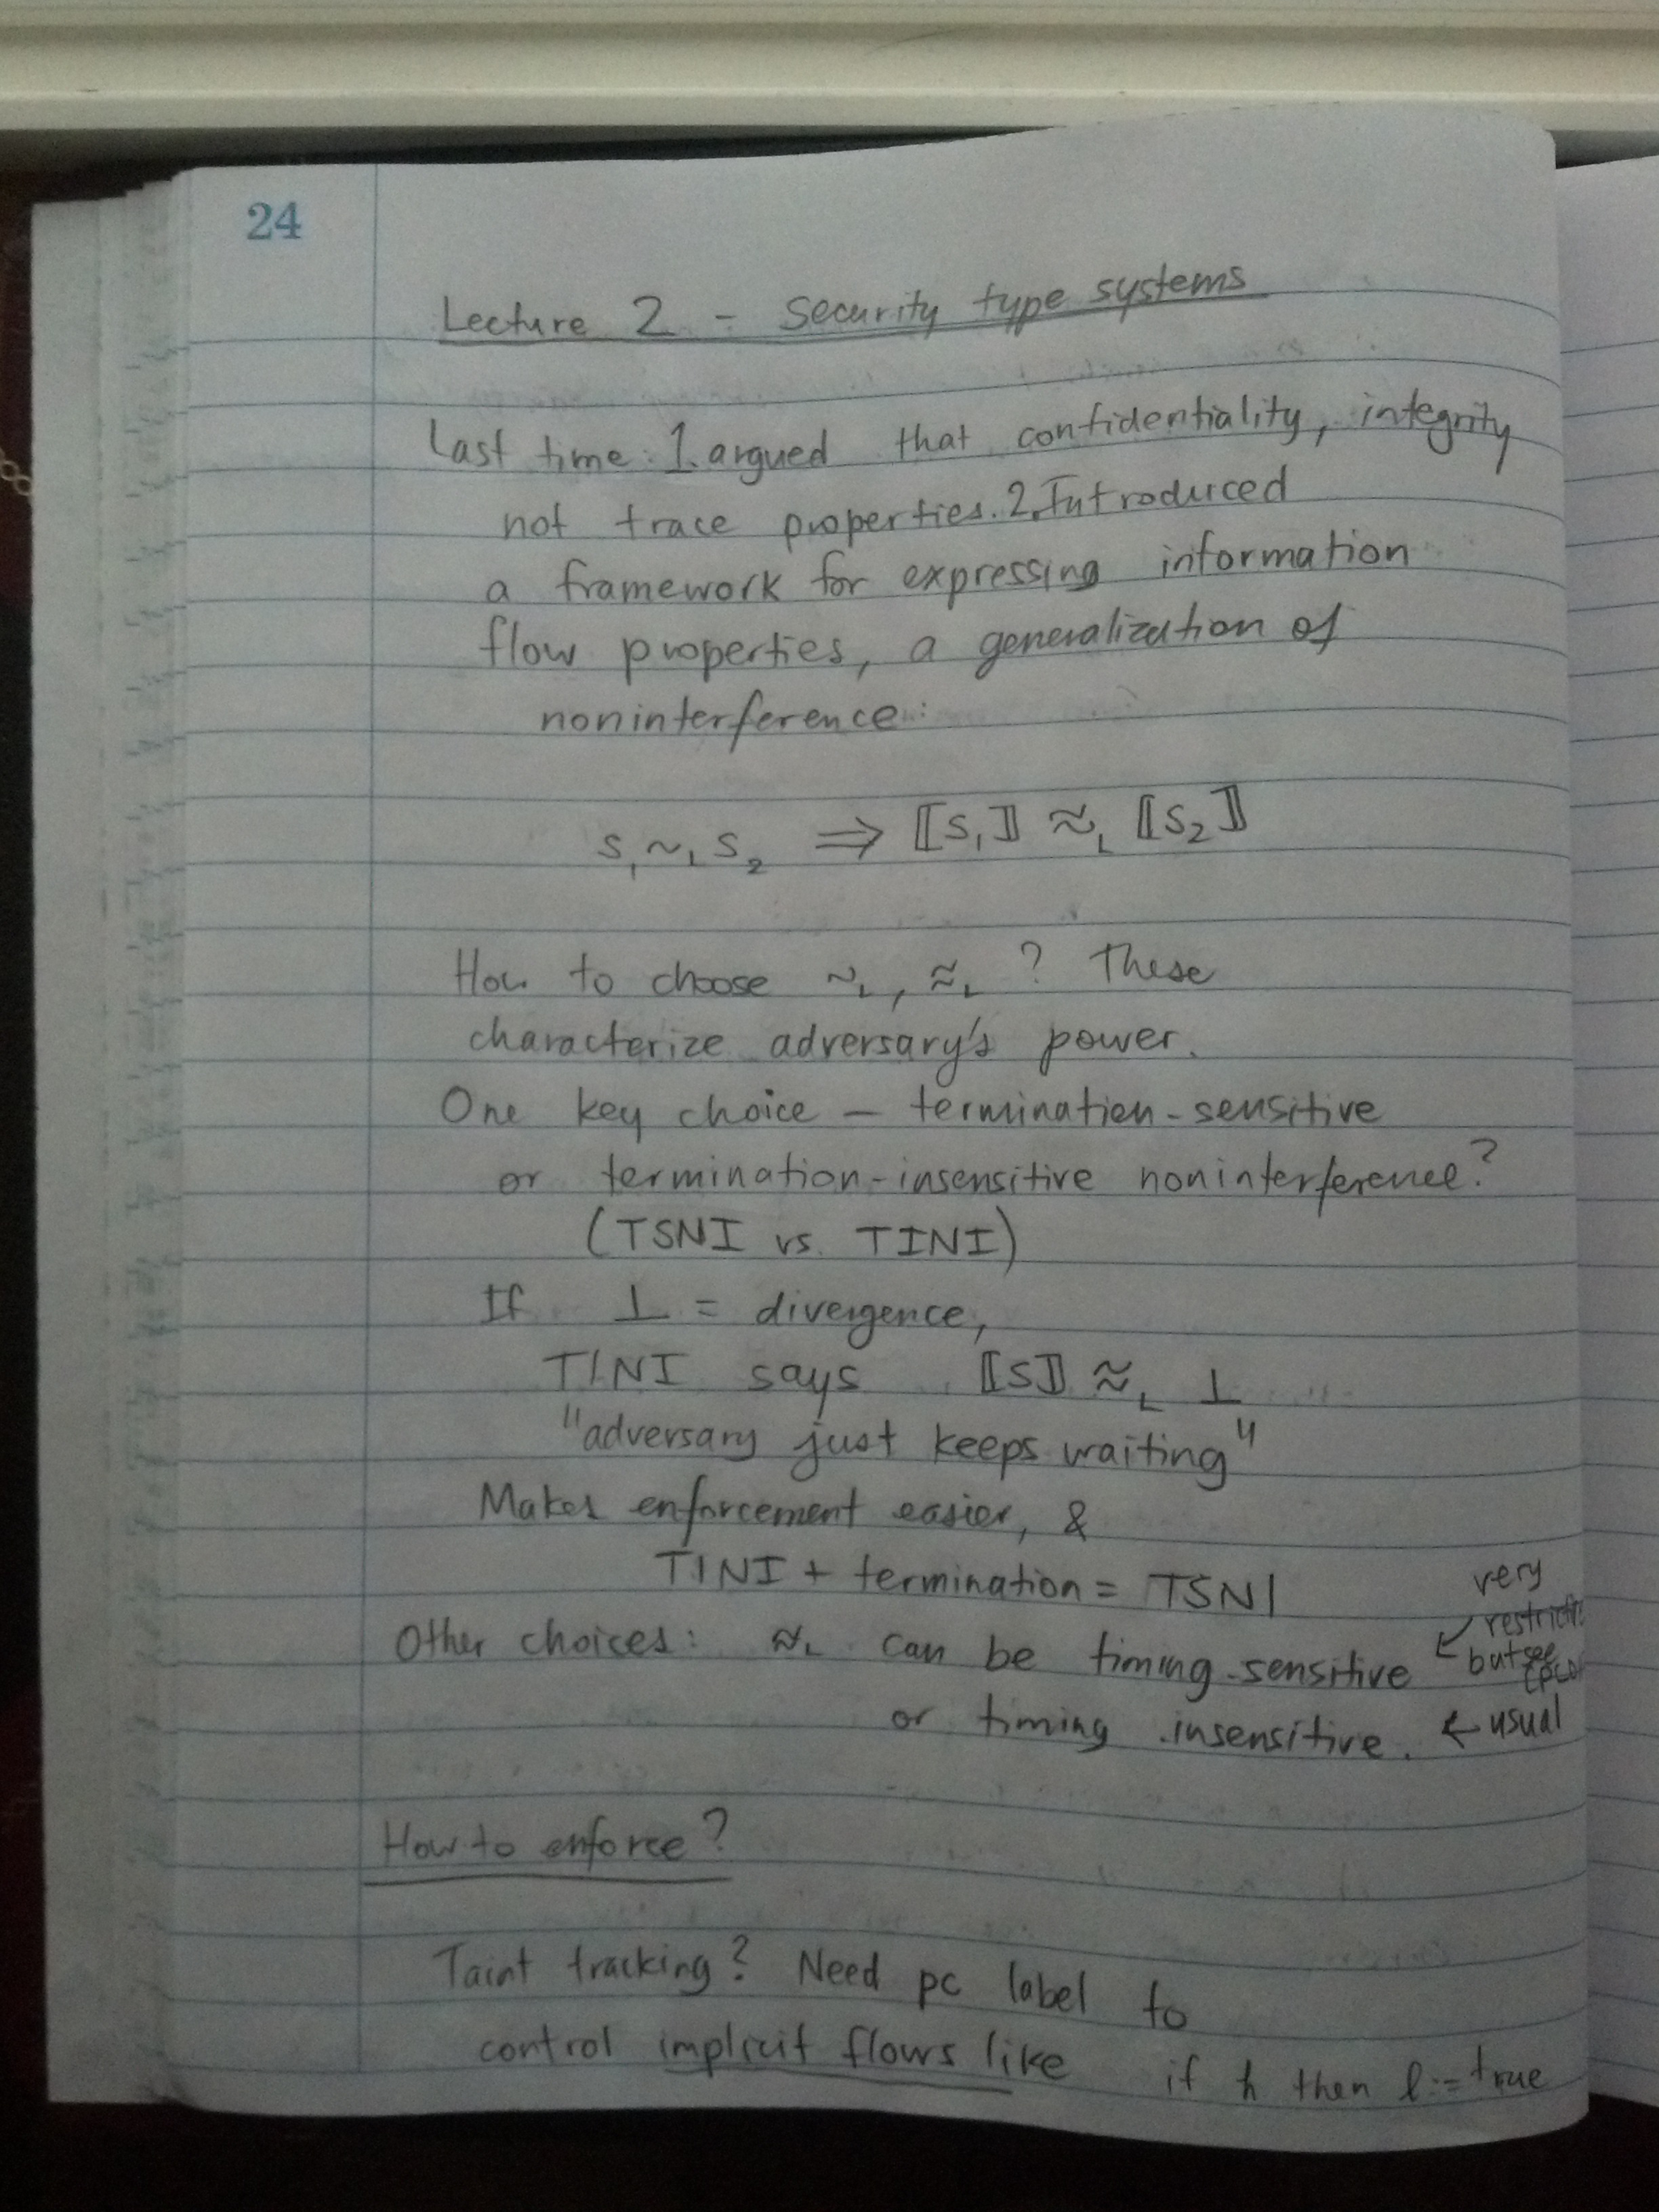 24
Lecture 2 - Security type systems
Last time: 1. argued that confidentiality, integrity
not trace properties. 2. Introduced
a framework for expressing information
flow properties, a generalization of
noninterference:
s₁ ~L s₂ ⇒ ⟦s₁⟧ ≈L ⟦s₂⟧
How to choose ~L, ≈L ? These
characterize adversary's power.
One key choice – termination-sensitive
or termination-insensitive noninterference?
(TSNI vs. TINI)
If ⊥ = divergence,
TINI says ⟦s⟧ ≈L ⊥
"adversary just keeps waiting"
Makes enforcement easier, &
TINI + termination = TSNI
Other choices: ≈L can be timing-sensitive ← very
but see
or timing insensitive. ← usual
How to enforce?
Taint tracking? Need pc label to
control implicit flows like if h then l := true